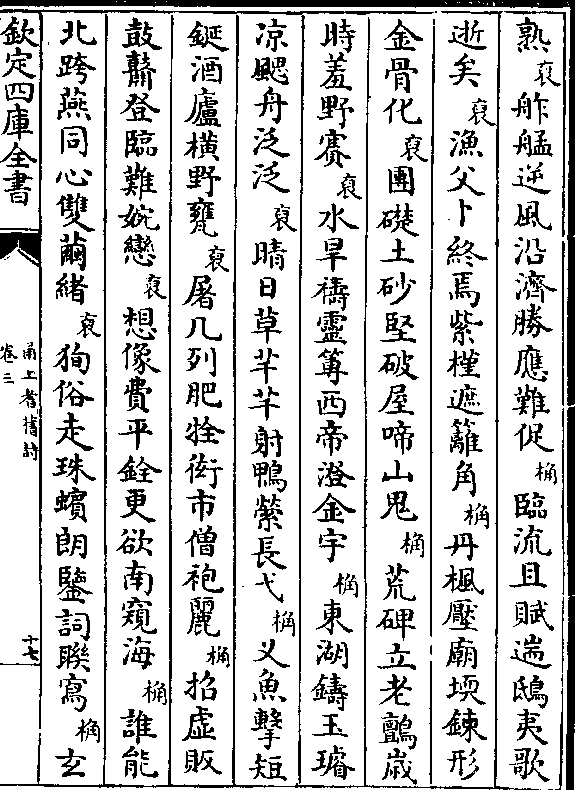 熟袞舴艋逆風沿濟勝應難促桷臨流且賦遄鴟夷歌
逝矣袞漁父卜終焉紫槿遮籬角桷丹楓壓廟堧鍊形
金骨化袞團礎土砂堅破屋啼山鬼桷荒碑立老鸇歳
時羞野賽袞水旱禱靈篿西帝澄金宇桷東湖鑄玉璿
凉颸舟泛泛袞晴日草芊芊射鴨縈長弋桷乂魚擊短
鋋酒廬橫野甕袞屠几列肥牷衒市僧袍麗桷招虛販
鼓鼘登臨難婉戀袞想像費平銓更欲南窺海桷誰能
北跨燕同心雙繭緒袞狥俗走珠蠙朗鑒詞聯寫桷玄
欽定四庫全書
甬上耆舊詩
卷三
十七